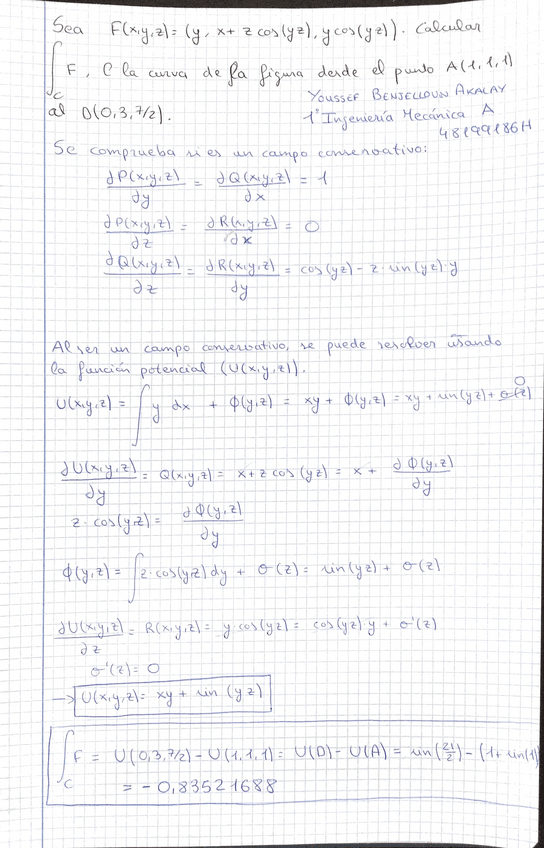 Sea F(x,y,z) = (y, x + z cos(yz), y cos(yz)). Calcular
∫_C F, C la curva de la figura desde el punto A(1,1,1)
al D(0,3,7/2).
YOUSSEF BENJELLOUN AKALAY
1º Ingeniería Mecánica A
48199186H
Se comprueba si es un campo conservativo:
∂P(x,y,z)/∂y = ∂Q(x,y,z)/∂x = 1
∂P(x,y,z)/∂z = ∂R(x,y,z)/∂x = 0
∂Q(x,y,z)/∂z = ∂R(x,y,z)/∂y = cos(yz) - z·sin(yz)·y
Al ser un campo conservativo, se puede resolver usando
la función potencial (U(x,y,z)).
U(x,y,z) = ∫ y dx + ϕ(y,z) = xy + ϕ(y,z) = xy + sin(yz) + σ(z) 0
∂U(x,y,z)/∂y = Q(x,y,z) = x + z cos(yz) = x + ∂ϕ(y,z)/∂y
z·cos(yz) = ∂ϕ(y,z)/∂y
ϕ(y,z) = ∫ z·cos(yz) dy + σ(z) = sin(yz) + σ(z)
∂U(x,y,z)/∂z = R(x,y,z) = y·cos(yz) = cos(yz)·y + σ'(z)
σ'(z) = 0
→ U(x,y,z) = xy + sin(yz)
∫_C F = U(0,3,7/2) - U(1,1,1) = U(D) - U(A) = sin(21/2) - (1 + sin(1))
= -0,83521688